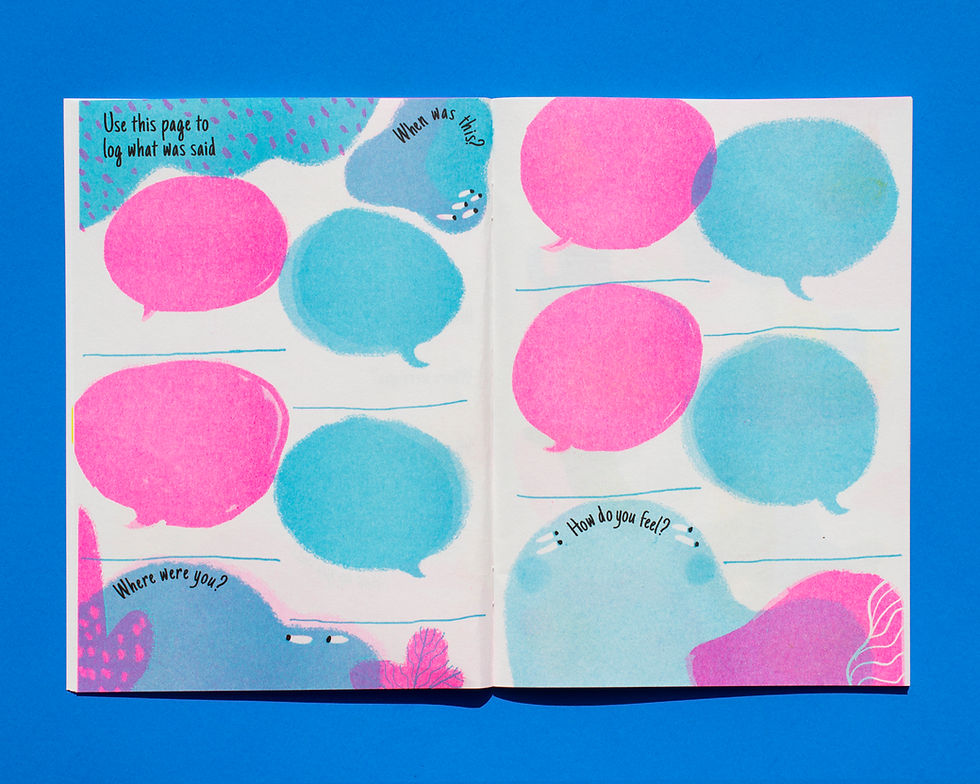 Use this page to
log what was said
When was this?
Where were you?
How do you feel?